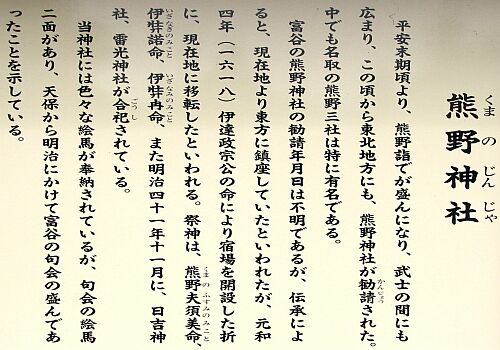 熊野神社
くまのじんじゃ
平安末期頃より、熊野詣でが盛んになり、武士の間にも
広まり、この頃から東北地方にも、熊野神社が勧請された。
かんじょう
中でも名取の熊野三社は特に有名である。
富谷の熊野神社の勧請年月日は不明であるが、伝承によ
ると、現在地より東方に鎮座していたといわれたが、元和
四年（一六一八）伊達政宗公の命により宿場を開設した折
に、現在地に移転したといわれる。祭神は、熊野夫須美命、
くまのふすみのみこと
伊弉諾命、伊弉冉命、また明治四十一年十一月に、日吉神
いざなぎのみこと いざなみのみこと
社、雷光神社が合祀されている。
ごうし
当神社には色々な絵馬が奉納されているが、句会の絵馬
二面があり、天保から明治にかけて富谷の句会の盛んであ
ったことを示している。